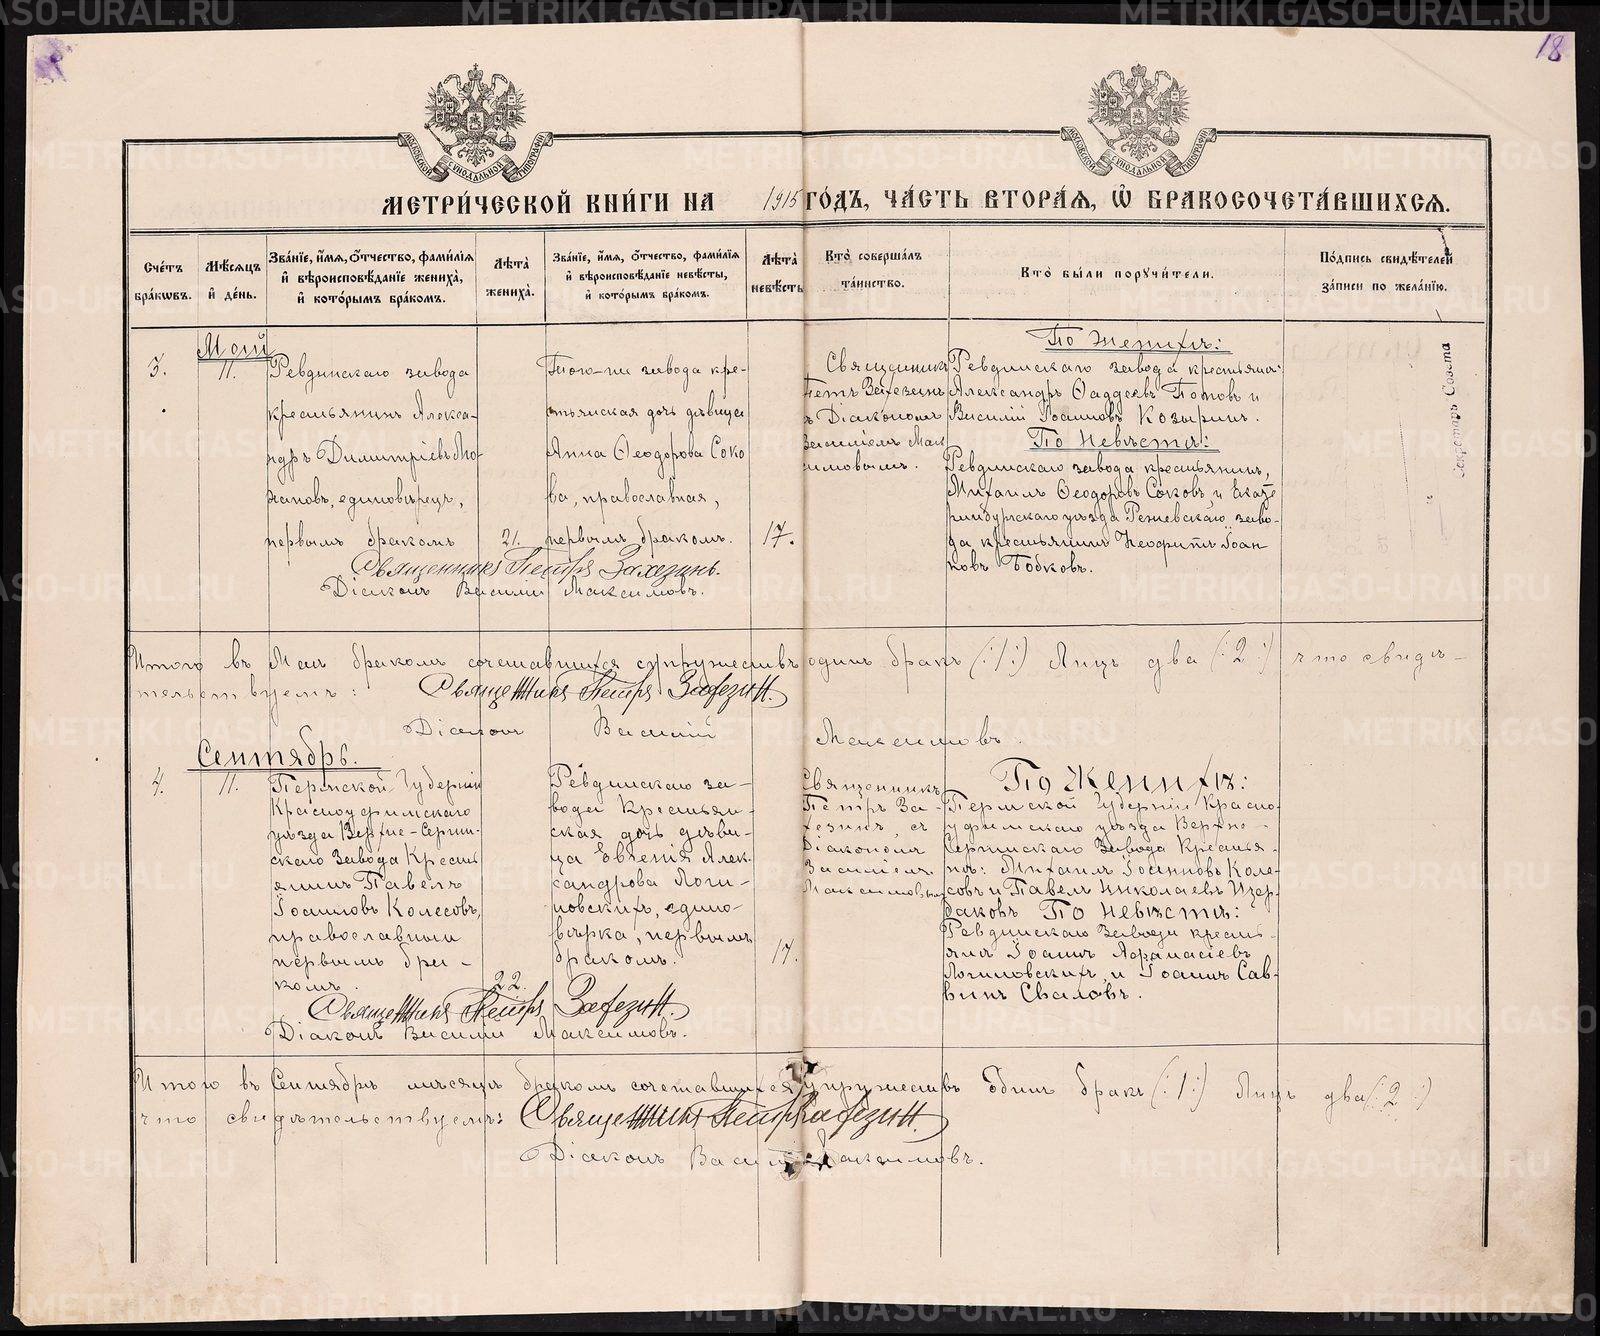 18
МОСКОВСКОЙ СИНОДАЛЬНОЙ ТИПОГРАФІИ
МОСКОВСКОЙ СИНОДАЛЬНОЙ ТИПОГРАФІИ
МЕТРИ́ЧЕСКОЙ КНИ́ГИ НА 1915 ГО́ДЪ, ЧА́СТЬ ВТОРА́Я, Ѽ БРАКОСОЧЕТА́ВШИХСЯ.
Сче́тъ бра́кѡвъ.
Мѣ́сяцъ и҆ де́нь.
Зва́нїе, и҆́мя, ѻ҆́тчество, фами́лїя и҆ вѣроисповѣ́данїе жениха̀, и҆ кото́рымъ бра́комъ.
Лѣта̀ жениха̀.
Зва́нїе, и҆́мя, ѻ҆́тчество, фами́лїя и҆ вѣроисповѣ́данїе невѣ́сты, и҆ кото́рымъ бра́комъ.
Лѣта̀ невѣ́сты
Кто̀ соверша́лъ та́инство.
Кто̀ бы́ли порꙋчи́тели.
По́дпись свидѣ́телей за́писи по жела́нїю.
Май
3.
11.
Ревдинскаго завода
крестьянинъ Алекса-
ндръ Димитріевъ Мо-
хановъ, единовѣрецъ,
первымъ бракомъ
21.
Того-же завода кре-
стьянская дочь дѣвица
Анна Ѳеодорова Соко
ва, православная,
первымъ бракомъ.
17.
Священникъ
Петръ Захезинъ
съ Діакономъ
Василіемъ Мак
симовымъ.
По женихѣ:
Ревдинскаго завода крестьяне:
Александръ Ѳаддеевъ Поповъ и
Василій Іоанновъ Козыринъ.
По невѣстѣ:
Ревдинскаго завода крестьянинъ,
Михаилъ Ѳеодоровъ Соковъ, и Екате
ринбургскаго уѣзда Режевскаго заво-
да крестьянинъ Неофитъ Іоан
новъ Бобковъ.
Секретарь Совета
Священникъ Петръ Захезинъ.
Діаконъ Василій Максимовъ.
Итого въ Маѣ бракомъ сочетавшихся супружествъ одинъ бракъ (:1:) Лицъ два (:2:) что свидѣ-
тельствуемъ: Священникъ Петръ Захезинъ.
Діаконъ Василій Максимовъ.
Сентябрь.
4.
11.
Пермской Губерніи
Красноуфимскаго
уѣзда Верхне-Сергин-
скаго Завода Кресть
янинъ Павелъ
Іоанновъ Колесовъ,
православный
первымъ бра-
комъ.
22.
Ревдинскаго за-
вода Крестьян-
ская дочь дѣви-
ца Евгенія Алек-
сандрова Логи-
новскихъ, едино-
вѣрка, первымъ
бракомъ.
17.
Священникъ
Петръ За-
хезинъ, съ
Діакономъ
Василіемъ
Максимовымъ
По Женихѣ:
Пермской Губерніи Красно
уфимскаго уѣзда Верхне-
Сергинскаго Завода Крестья-
не: Михаилъ Іоанновъ Коле-
совъ и Павелъ Николаевъ Изер-
даковъ По Невѣстѣ:
Ревдинскаго Завода кресть-
яне Іоаннъ Аѳанасіевъ
Логиновскихъ, и Іоаннъ Сав-
винъ Сваловъ.
Священникъ Петръ Захезинъ.
Діаконъ Василій Максимовъ.
Итого въ Сентябрѣ мѣсяцѣ бракомъ сочетавшихся супружествъ Одинъ бракъ (:1:) Лицъ два (:2:)
что свидѣтельствуемъ: Священникъ Петръ Захезинъ.
Діаконъ Василій Максимовъ.
METRIKI.GASO-URAL.RU